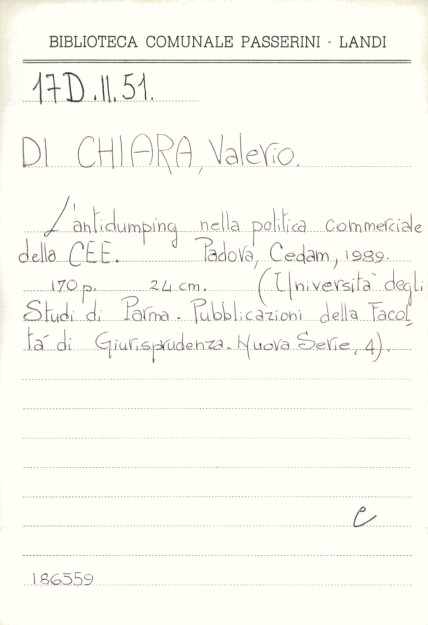 BIBLIOTECA COMUNALE PASSERINI - LANDI
17D.II.51.
DI CHIARA, Valerio.
L'antidumping nella politica commerciale
della CEE. Padova, Cedam, 1989.
170 p. 24 cm. (Università degli
Studi di Parma. Pubblicazioni della Facol
tà di Giurisprudenza. Nuova Serie, 4).
e
186559